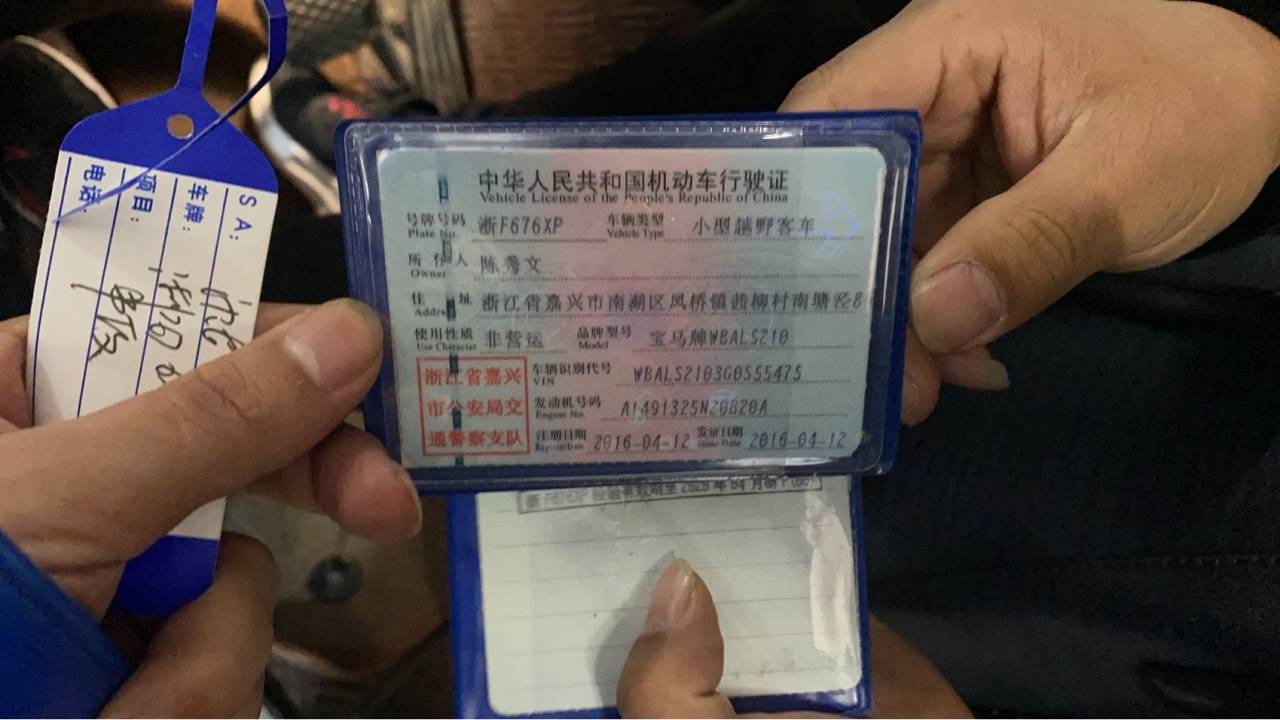 中华人民共和国机动车行驶证
Vehicle License of the People's Republic of China
号牌号码 浙F676XP 车辆类型 小型越野客车
Plate No. Vehicle Type
所有人 陈秀文
Owner
住址 浙江省嘉兴市南湖区凤桥镇茜柳村南塘泾8
Address
使用性质 非营运 品牌型号 宝马牌WBALS210
Use Character Model
浙江省嘉兴
市公安局交
通警察支队
车辆识别代号 WBALS2103G0S55475
VIN
发动机号码 A1491325N20B20A
Engine No.
注册日期 2016-04-12 发证日期 2016-04-12
Register Date Issue Date
浙F676XP 检验有效期至
SA:
车牌:
项目:
电话: